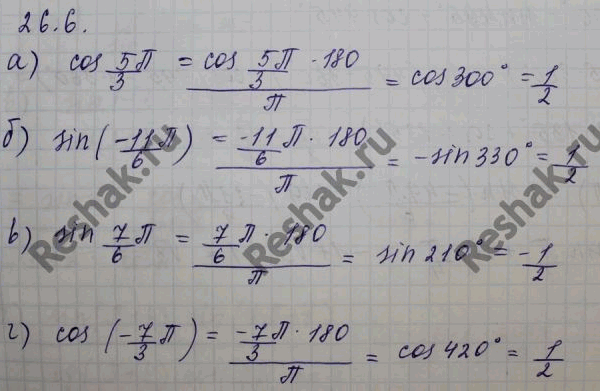 26.6.
а) cos 5/3 П = (cos 5/3 П · 180)/П = cos 300° = 1/2
б) sin(-11/6 П) = (-11/6 П · 180)/П = -sin 330° = 1/2
в) sin 7/6 П = (7/6 П · 180)/П = sin 210° = -1/2
г) cos (-7/3 П) = (-7/3 П · 180)/П = cos 420° = 1/2
Reshak.ru
Reshak.ru
Reshak.ru